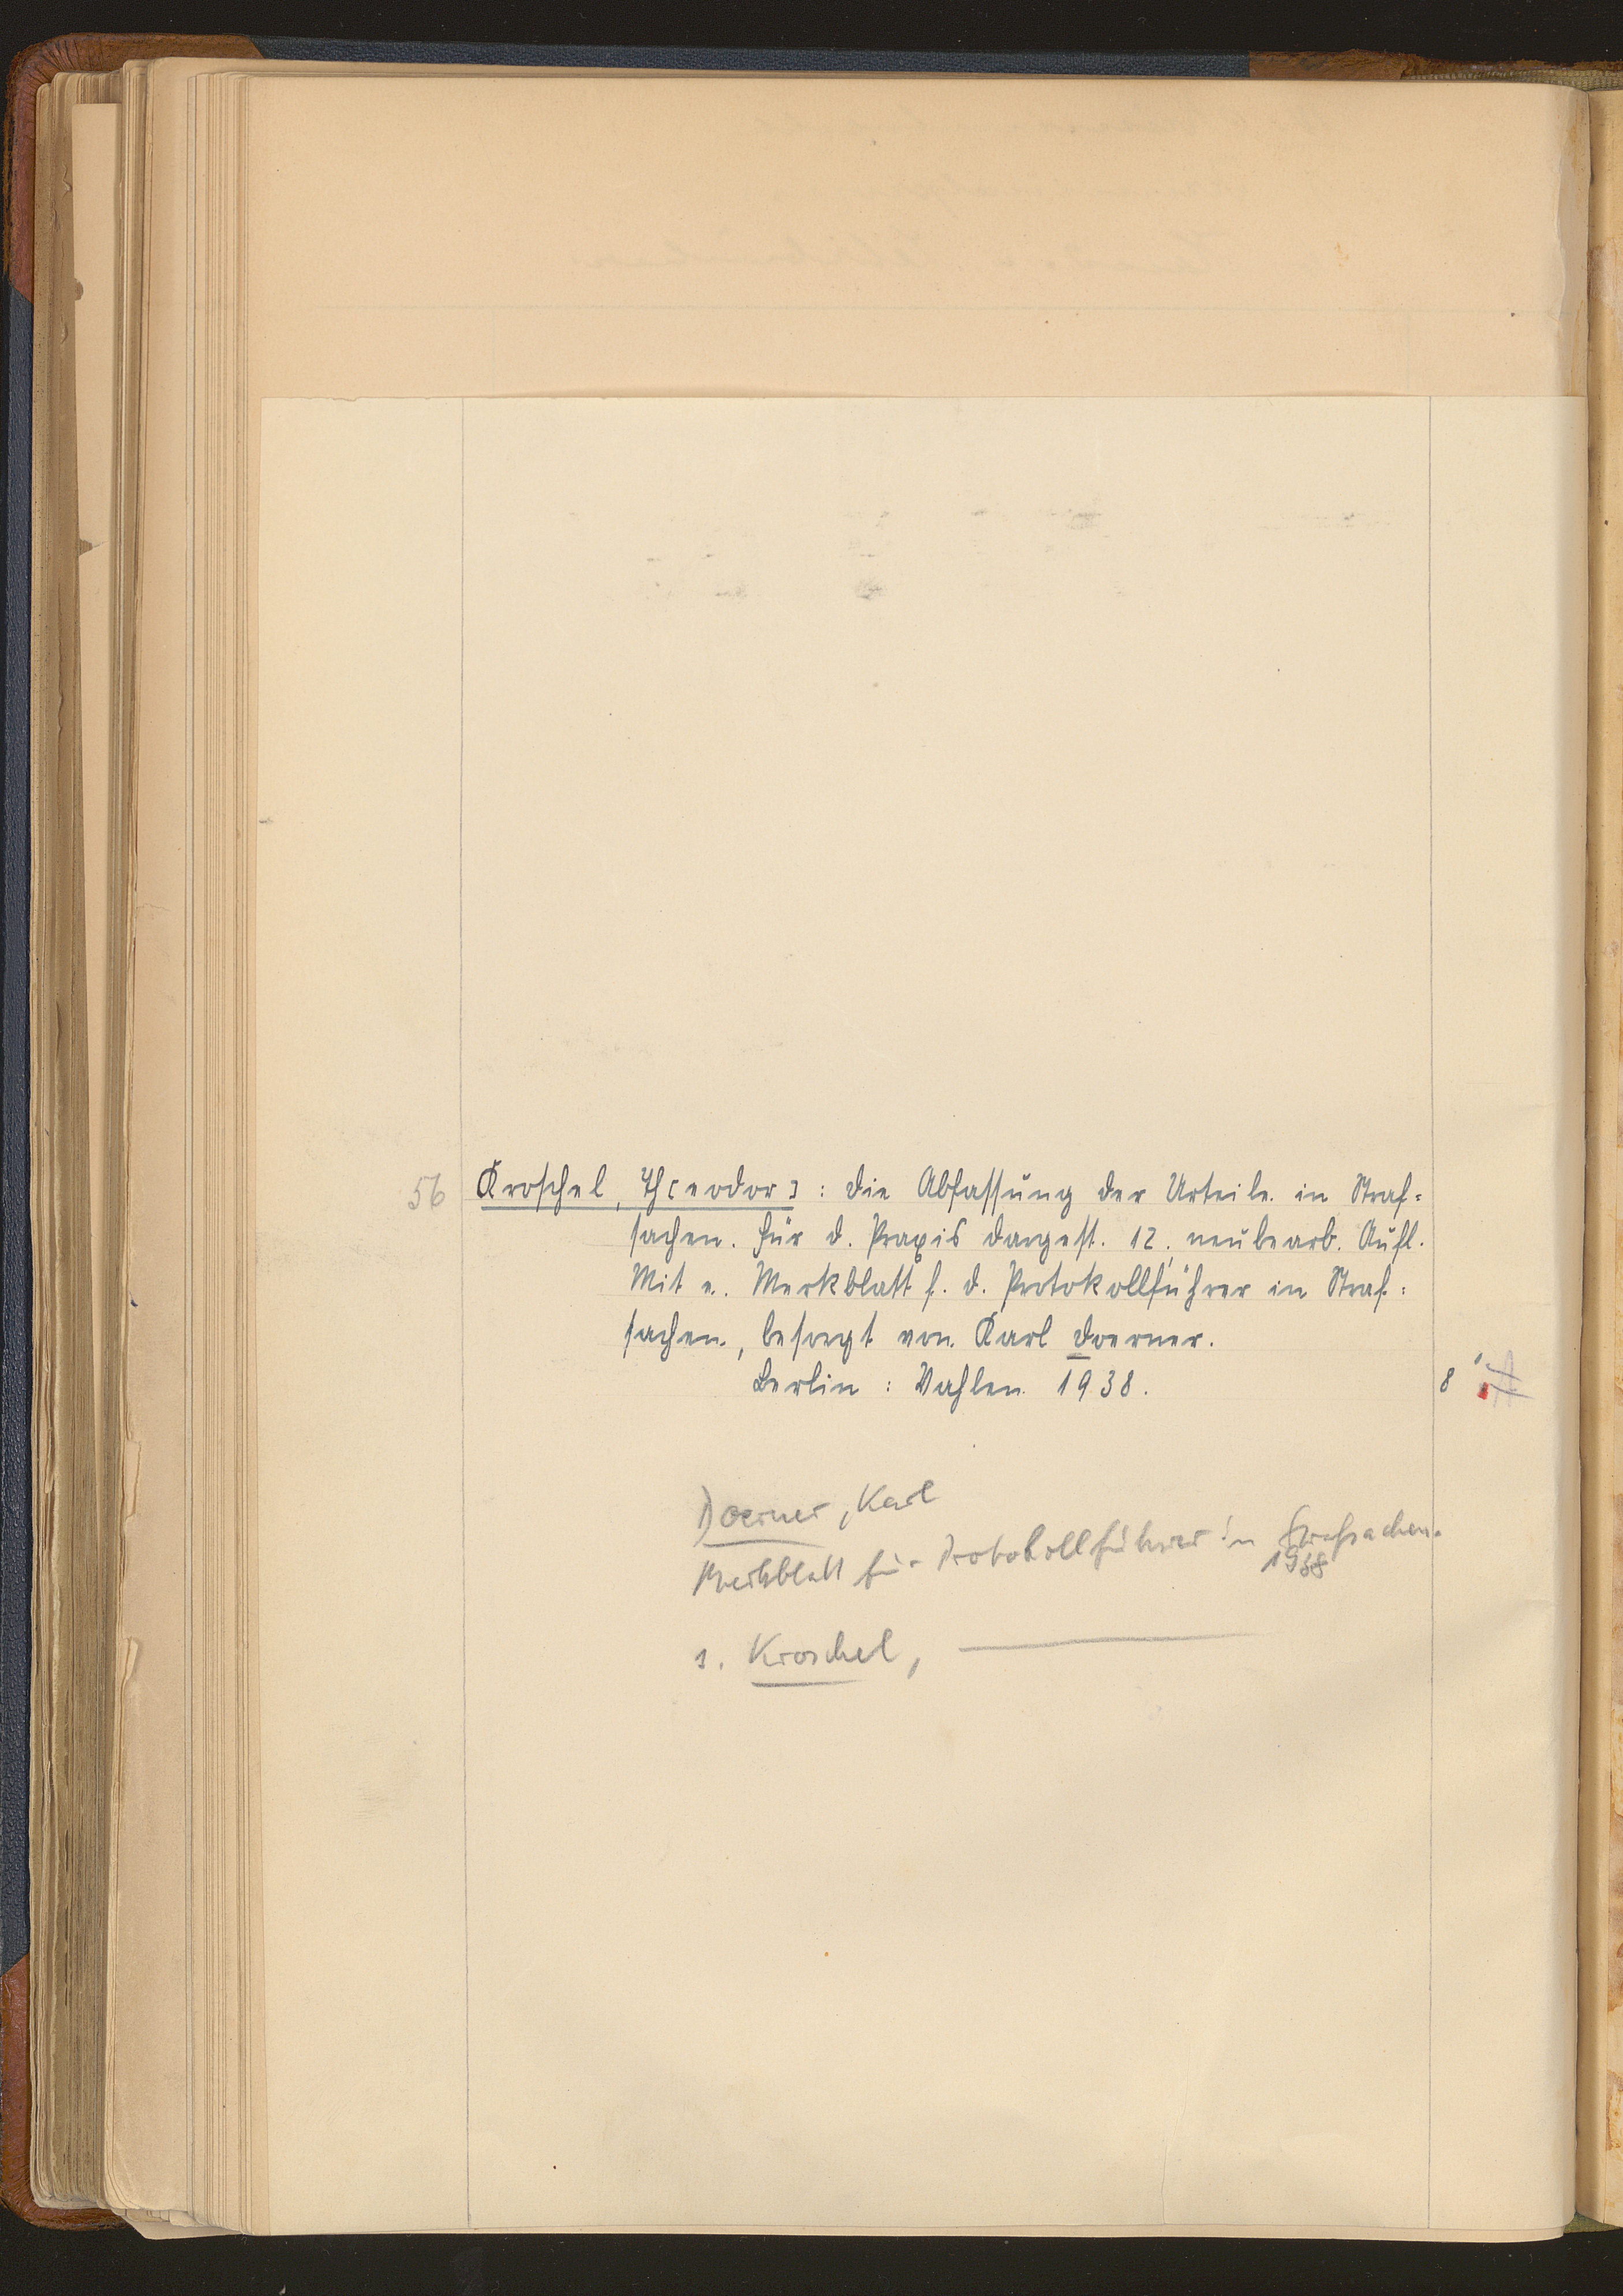 56 Kroschel, Th[eodor]: Die Abfassung der Urteile in Straf-
sachen. Für d. Praxis dargest. 12., neubearb. Aufl.
Mit e. Merkblatt f. d. Protokollführer in Straf-
sachen, besorgt von Karl Doerner.
Berlin: Vahlen 1938. 8'
Doerner, Karl
Merkblatt für Protokollführer in Strafsachen.
1938
s. Kroschel,